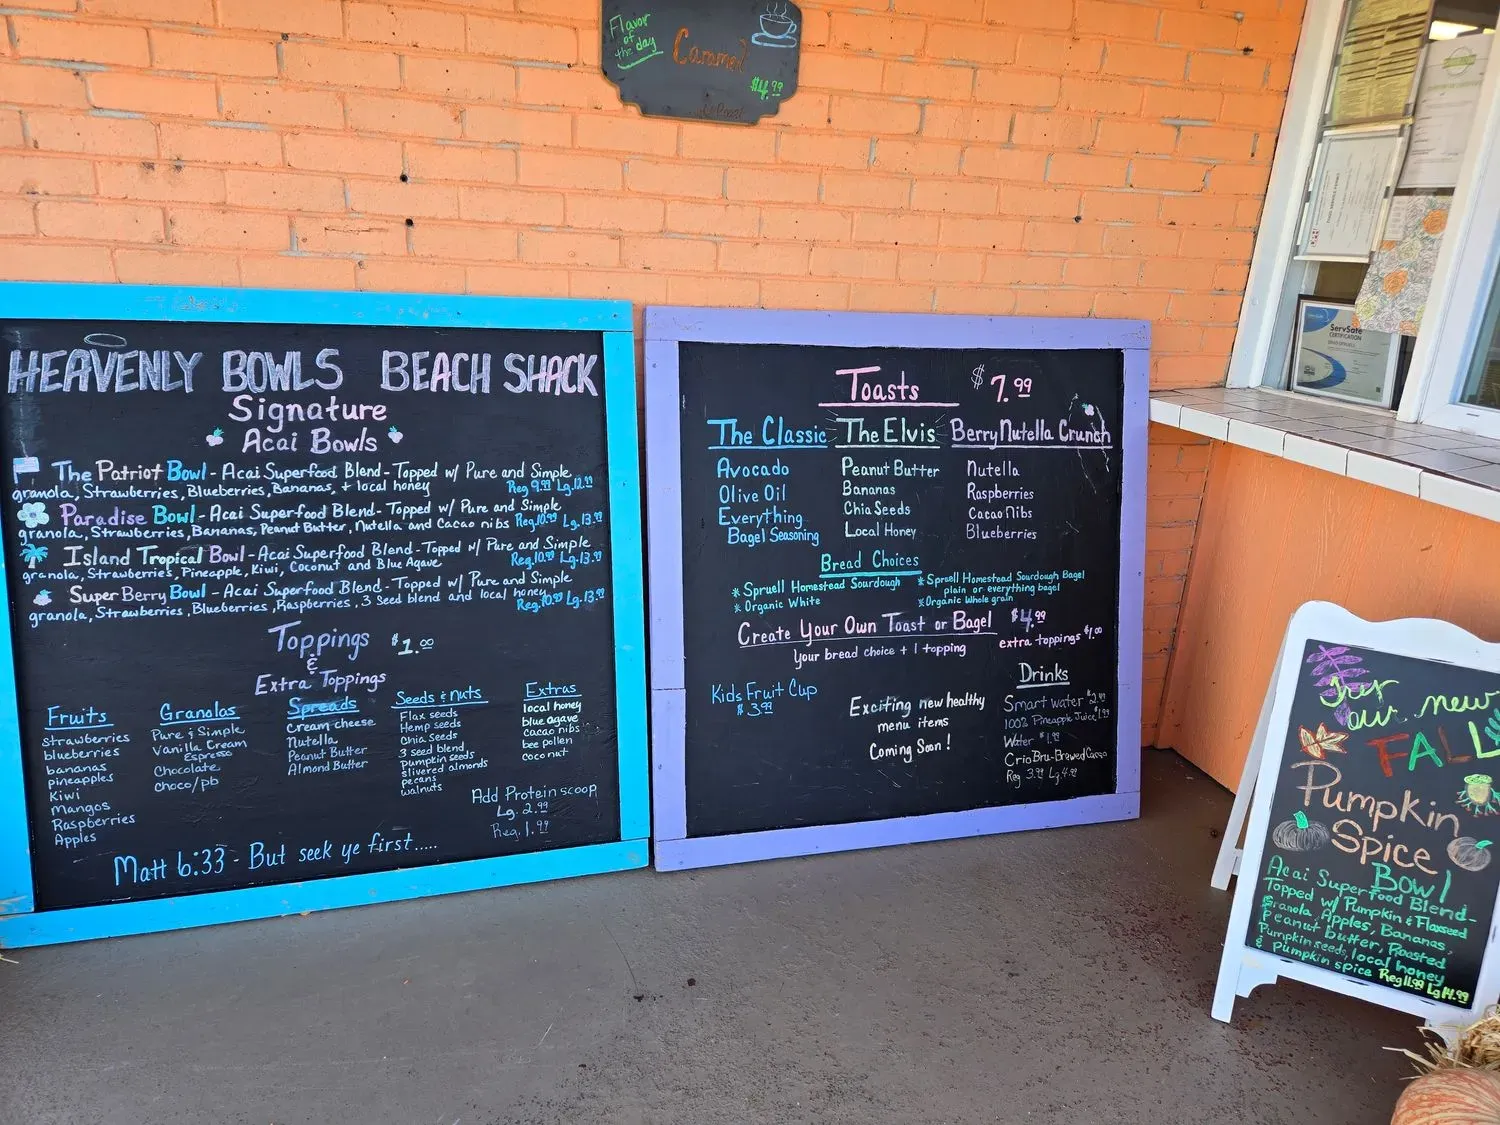 Flavor
of
the day
Caramel
$4.99
HEAVENLY BOWLS BEACH SHACK
Signature
Acai Bowls
The Patriot Bowl - Acai Superfood Blend - Topped w/ Pure and Simple
granola, Strawberries, Blueberries, Bananas, + local honey Reg 9.99 Lg. 12.99
Paradise Bowl - Acai Superfood Blend - Topped w/ Pure and Simple
granola, Strawberries, Bananas, Peanut Butter, Nutella and Cacao nibs Reg. 10.99 Lg. 13.99
Island Tropical Bowl - Acai Superfood Blend - Topped w/ Pure and Simple
granola, Strawberries, Pineapple, Kiwi, Coconut and Blue Agave Reg. 10.99 Lg. 13.99
Super Berry Bowl - Acai Superfood Blend - Topped w/ Pure and Simple
granola, Strawberries, Blueberries, Raspberries, 3 Seed blend and local honey Reg. 10.99 Lg. 13.99
Toppings $1.00
&
Extra Toppings
Fruits
strawberries
blueberries
bananas
pineapples
Kiwi
Mangos
Raspberries
Apples
Granolas
Pure & Simple
Vanilla Cream
Espresso
Chocolate
Choco/pb
Spreads
cream cheese
Nutella
Peanut Butter
Almond Butter
Seeds & nuts
Flax seeds
Hemp seeds
Chia Seeds
3 seed blend
Pumpkin seeds
slivered almonds
pecans
walnuts
Extras
local honey
blue agave
cacao nibs
bee pollen
coconut
Add Protein scoop
Lg. 2.99
Reg. 1.99
Matt 6:33 - But seek ye first.....
Toasts $7.99
The Classic
Avocado
Olive Oil
Everything
Bagel Seasoning
The Elvis
Peanut Butter
Bananas
Chia Seeds
Local Honey
Berry Nutella Crunch
Nutella
Raspberries
Cacao Nibs
Blueberries
Bread Choices
* Spruell Homestead Sourdough
* Organic White
* Spruell Homestead Sourdough Bagel
plain or everything bagel
* Organic Whole grain
Create Your Own Toast or Bagel $4.99
Your bread choice + 1 topping
extra toppings $1.00
Kids Fruit Cup
$3.99
Exciting new healthy
menu items
Coming Soon!
Drinks
Smart water $2.49
100% Pineapple Juice $1.99
Water $1.99
Crio Bru - Brewed Cacao
Reg 3.99 Lg 4.99
ServSafe
CERTIFICATION
Try our new
FALL
Pumpkin
Spice
Bowl
Acai Superfood Blend -
Topped w/ Pumpkin & Flaxseed
Granola, Apples, Bananas,
Peanut butter, Roasted
Pumpkin seeds, local honey
& Pumpkin spice Reg 11.99 Lg 14.99